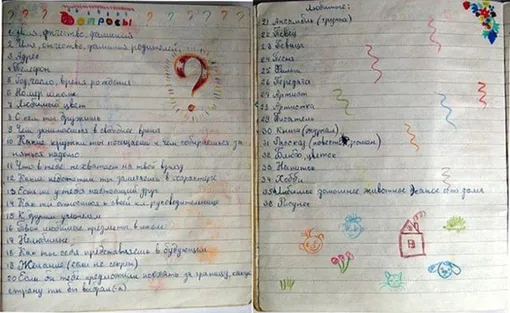 Вопросы
1 Имя, отчество, фамилия
2 Имя, отчество, фамилия родителей,
3 Адрес
4 Телефон
5 Год, число, время рождения
6 Номер школы
7 Любимый цвет
8 С кем ты дружишь
9 Чем занимаешься в свободное время
10 Какие кружки ты посещаешь и чем собираешься за-
няться надолго
11 Что в тебе не хватает на твой взгляд
12 Какие недостатки ты замечаешь в характере
13 Есть ли у тебя настоящий друг
14 Как ты относишься к своей кл. руководительнице
15 К другим учителям
16 Твои любимые предметы в школе
17 Нелюбимые
18 Как ты себя представляешь в будующем
19 Желание (если не секрет)
20 Если бы тебе предложили поехать за границу, какую
страну ты бы выбрал(-а)
Любимые:
21 Ансамбль (группа)
22 Певец
23 Певица
24 Песня
25 Фильм
26 Передача
27 Артист
28 Артистка
29 Писатель
30 Книга (журнал)
31 Рассказ (повесть, роман)
32 Блюдо, цветок
33 Напиток
34 Хобби
35 Любимое домашнее животное
36 Рисунок